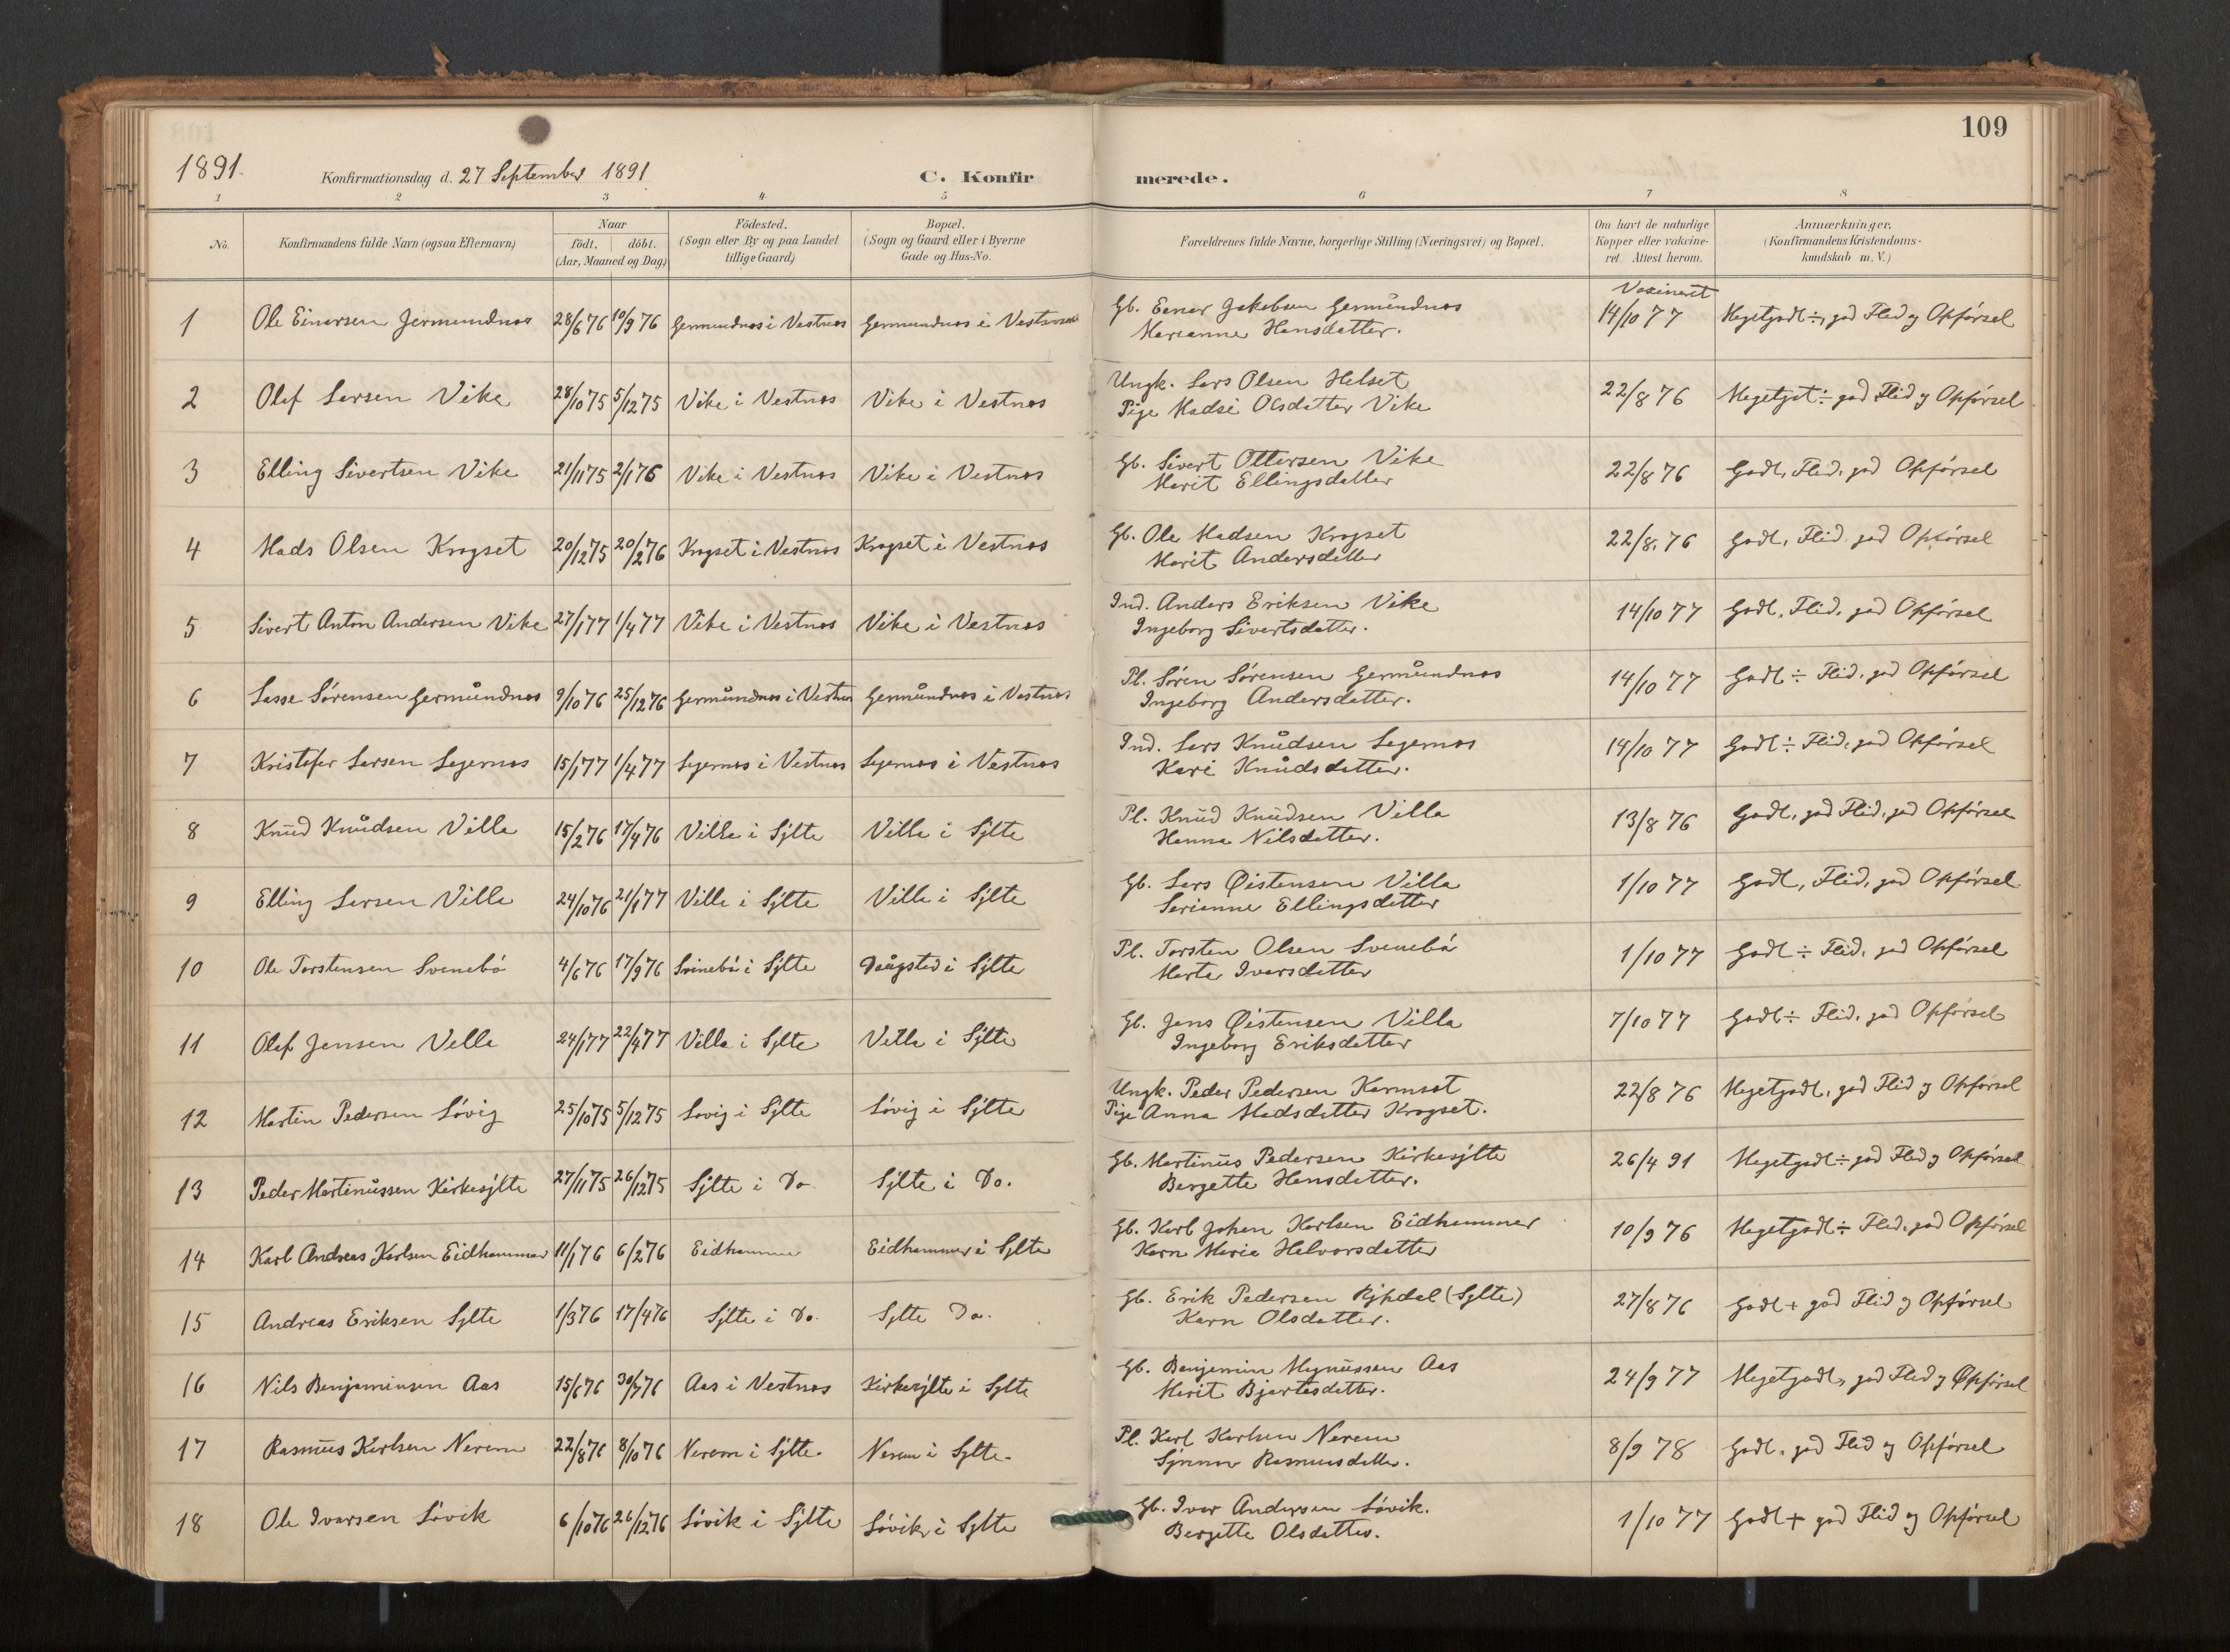 109
1891.
Konfirmationsdag d. 27 September 1891
C. Konfirmerede.
1 2 3 4 5 6 7 8
No. | Konfirmandens fulde Navn (ogsaa Efternavn) | Naar födt. | döbt. (Aar, Maaned og Dag) | Födested. (Sogn eller By og paa Landet tillige Gaard) | Bopæl. (Sogn og Gaard eller i Byerne Gade og Hus-No. | Forældrenes fulde Navne, borgerlige Stilling (Næringsvei) og Bopæl. | Om havt de naturlige Kopper eller vakcineret. Attest herom. | Anmærkninger. (Konfirmandens Kristendomskundskab m. V.)
1 Ole Einarsen Jermundnos 28/6 76 10/9 76 Germundnos i Vestnos Germundnos i Vestnos Gb. Eenar Jakobsen Germůndnos Vaxineret 14/10 77 Megetgodt÷, god Flid og Opførsel
Marianne Hansdatter.
2 Olaf Larsen Vike 28/10 75 5/12 75 Vike i Vestnos Vike i Vestnos Ungk. Lars Olsen Helset 22/8 76 Megetgot÷ god Flid og Opførsel
Pige Madsi Olsdatter Vike
3 Elling Sivertsen Vike 21/11 75 2/1 76 Vike i Vestnos Vike i Vestnos Gb. Sivert Ottersen Vike 22/8 76 Godt, Flid, god Opførsel
Marit Ellingsdatter
4 Mads Olsen Krogset 20/12 75 20/2 76 Krogset i Vestnos Krogset i Vestnos Gb. Ole Madsen Krogset 22/8. 76 Godt, Flid god Opførsel
Marit Andersdatter
5 Sivert Anton Andersen Vike 27/1 77 1/4 77 Vike i Vestnos Vike i Vestnos Ind. Anders Eriksen Vike 14/10 77 Godt, Flid, god Opførsel
Ingeborg Sivertsdatter.
6 Lasse Sørensen Germůndnos 9/10 76 25/12 76 Germůndnos i Vestnos Germůndnos i Vestnos Pl. Søren Sørensen Germůndnos 14/10 77 Godt÷ Flid, god Opførsel
Ingeborg Andersdatter.
7 Kristofer Larsen Legernos 15/1 77 1/4 77 Legernos i Vestnos Legernos i Vestnos Ind. Lars Knůdsen Legernos 14/10 77 Godt÷ Flid, god Opførsel
Kari Knůdsdatter.
8 Knůd Knůdsen Villa 15/2 76 17/4 76 Villa i Sylte Villa i Sylte Pl. Knůd Knůdsen Villa 13/8 76 Godt, god Flid, god Opførsel
Hanna Nilsdatter.
9 Elling Larsen Villa 24/10 76 21/1 77 Villa i Sylte Villa i Sylte Gb. Lars Øistensen Villa 1/10 77 Godt, Flid, god Opførsel
Serianne Ellingsdatter
10 Ole Torstensen Svenebø 4/6 76 17/9 76 Svinebø i Sylte Daůgsted i Sylte Pl. Torsten Olsen Svenebø 1/10 77 Godt÷ Flid, god Opførsel
Marta Ivarsdatter
11 Olaf Jensen Vella 24/1 77 22/4 77 Villa i Sylte Vella i Sylte Gb. Jens Øistensen Villa 7/10 77 Godt÷ Flid, god Opførsel
Ingeborg Eriksdatter
12 Martin Pedersen Søvig 25/10 75 5/12 75 Sovig i Sylte Søvig i Sylte Ungk. Peder Pedersen Kormset 22/8 76 Megetgodt, god Flid og Opførsel
Pige Anna Madsdatter Krogset.
13 Peder Martinůssen Kirkesylte 27/11 75 26/12 75 Sylte i Do Sylte i Do. Gb. Martinůs Pedersen Kirkesylte 26/4 91 Megetgodt÷ god Flid og Opførsel
Bergette Hansdatter.
14 Karl Andreas Karlsen Eidhammer 11/1 76 6/2 76 Eidhammer Eidhammer i Sylte Gb. Karl Johan Karlsen Eidhammer 10/9 76 Megetgodt÷ Flid, god Opførsel
Karn Maria Halvorsdatter
15 Andreas Eriksen Sylte 1/3 76 17/4 76 Sylte i Do. Sylte Do. Gb. Erik Pedersen Rypdal (Sylte) 27/8 76 Godt + god Flid og Opførsel
Karn Olsdatter.
16 Nils Benjaminsen Aas 15/6 76 30/7 76 Aas i Vestnos Kirkesylte i Sylte Gb. Benjamin Magnůssen Aas 24/9 77 Megetgodt, god Flid og Opførsel
Marit Bjartesdatter.
17 Rasmůs Karlsen Nerem 22/8 76 8/10 76 Nerem i Sylte. Nerem i Sylte. Pl. Karl Karlsen Nerem 8/9 78 Godt, god Flid og Opførsel
Synnev Rasmusdatter.
18 Ole Ivarsen Søvik 6/10 76 26/12 76 Søvik i Sylte Søvik i Sylte Gb. Ivar Andersen Søvik. 1/10 77 Godt + god Flid og Opførsel
Bergette Olsdatter.